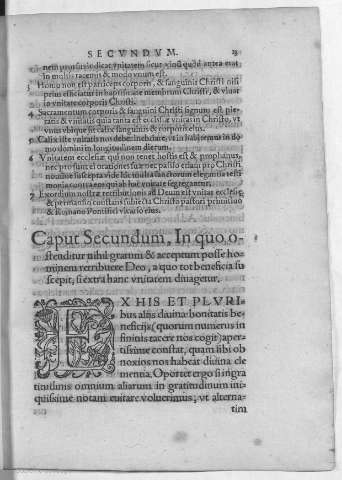 SECVNDVM. 23
nem prorsus indicat vnitatem sicut vinũ quod antea erat
in multis racemis & modo vnum est.
3 Homo non est particeps corporis, & sanguinis Christi nisi
prius efficiatur in baptismate membrum Christi, & viuat
in vnitate corporis Christi.
4 Sacramentum corporis & sanguinis Christi signum est pie-
tatis & vnitatis quia tanta est ecclesiæ vnitas in Christo, vt
vnus vbique sit calix sanguinis & corporis eius.
5 Calix iste vnitatis nos debet inebriare, vt in habitemus in do
mo domini in longitudinem dierum.
6 Vnitatem ecclesiæ qui non tenet hostis est & prophanus,
nec prosunt ei orationes suæ nec passio etiam pro Christi
nomine suscepta vide hic multa sanctorum elegantia testi
monia contra eos qui ab hac vnitate segregantur.
7 Exordium nostræ retributionis ad Deum est vnitas ecclesiæ,
& permansio constans subiecta Christo pastori primario
& Romano Pontifici vicario eius.
Caput Secundum, In quo o-
stenditur nihil gratum & acceptum posse ho
minem retribuere Deo, a quo tot beneficia su
scepit, si extra hanc vnitatem diuagetur.
EX HIS ET PLVRI
bus alijs diuinæ bonitatis be
neficijs (quorum numerus in
finitus tacere nos cogit) aper-
tissime constat, quam sibi ob
noxios nos habeat diuina cle
mentia. Oportet ergo si ingra
titudinis omnium aliarum in gratitudinum ini-
quissimæ notam euitare voluerimus, vt alterna-
tim